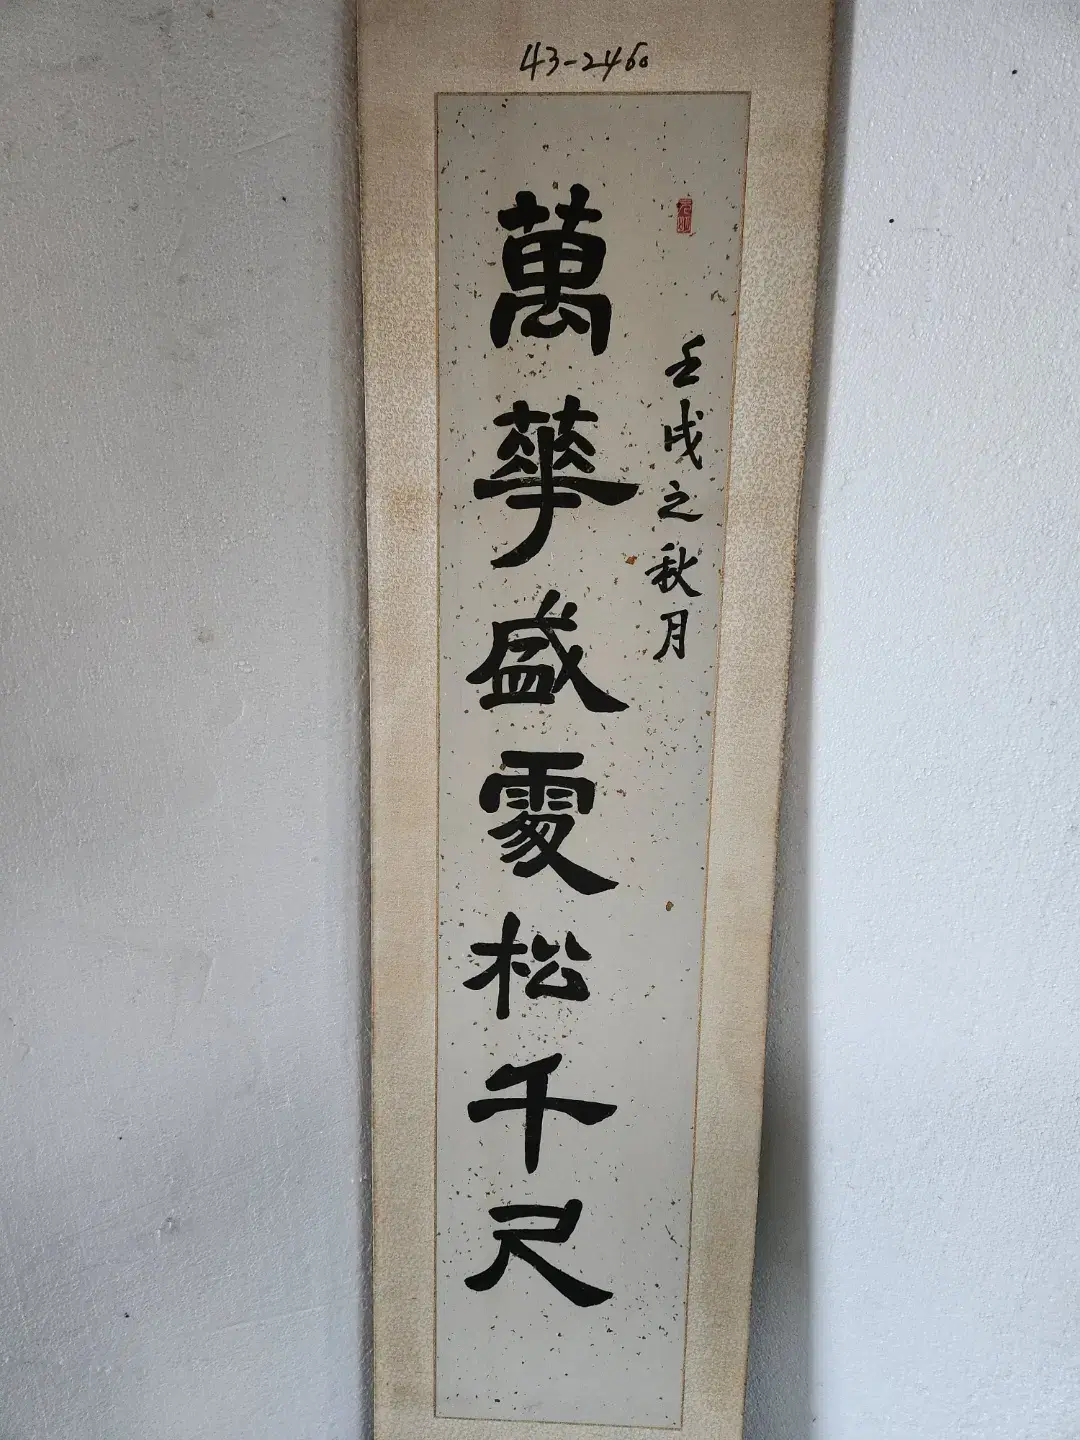 43-2460
壬戌之秋月
萬華盛處松千尺